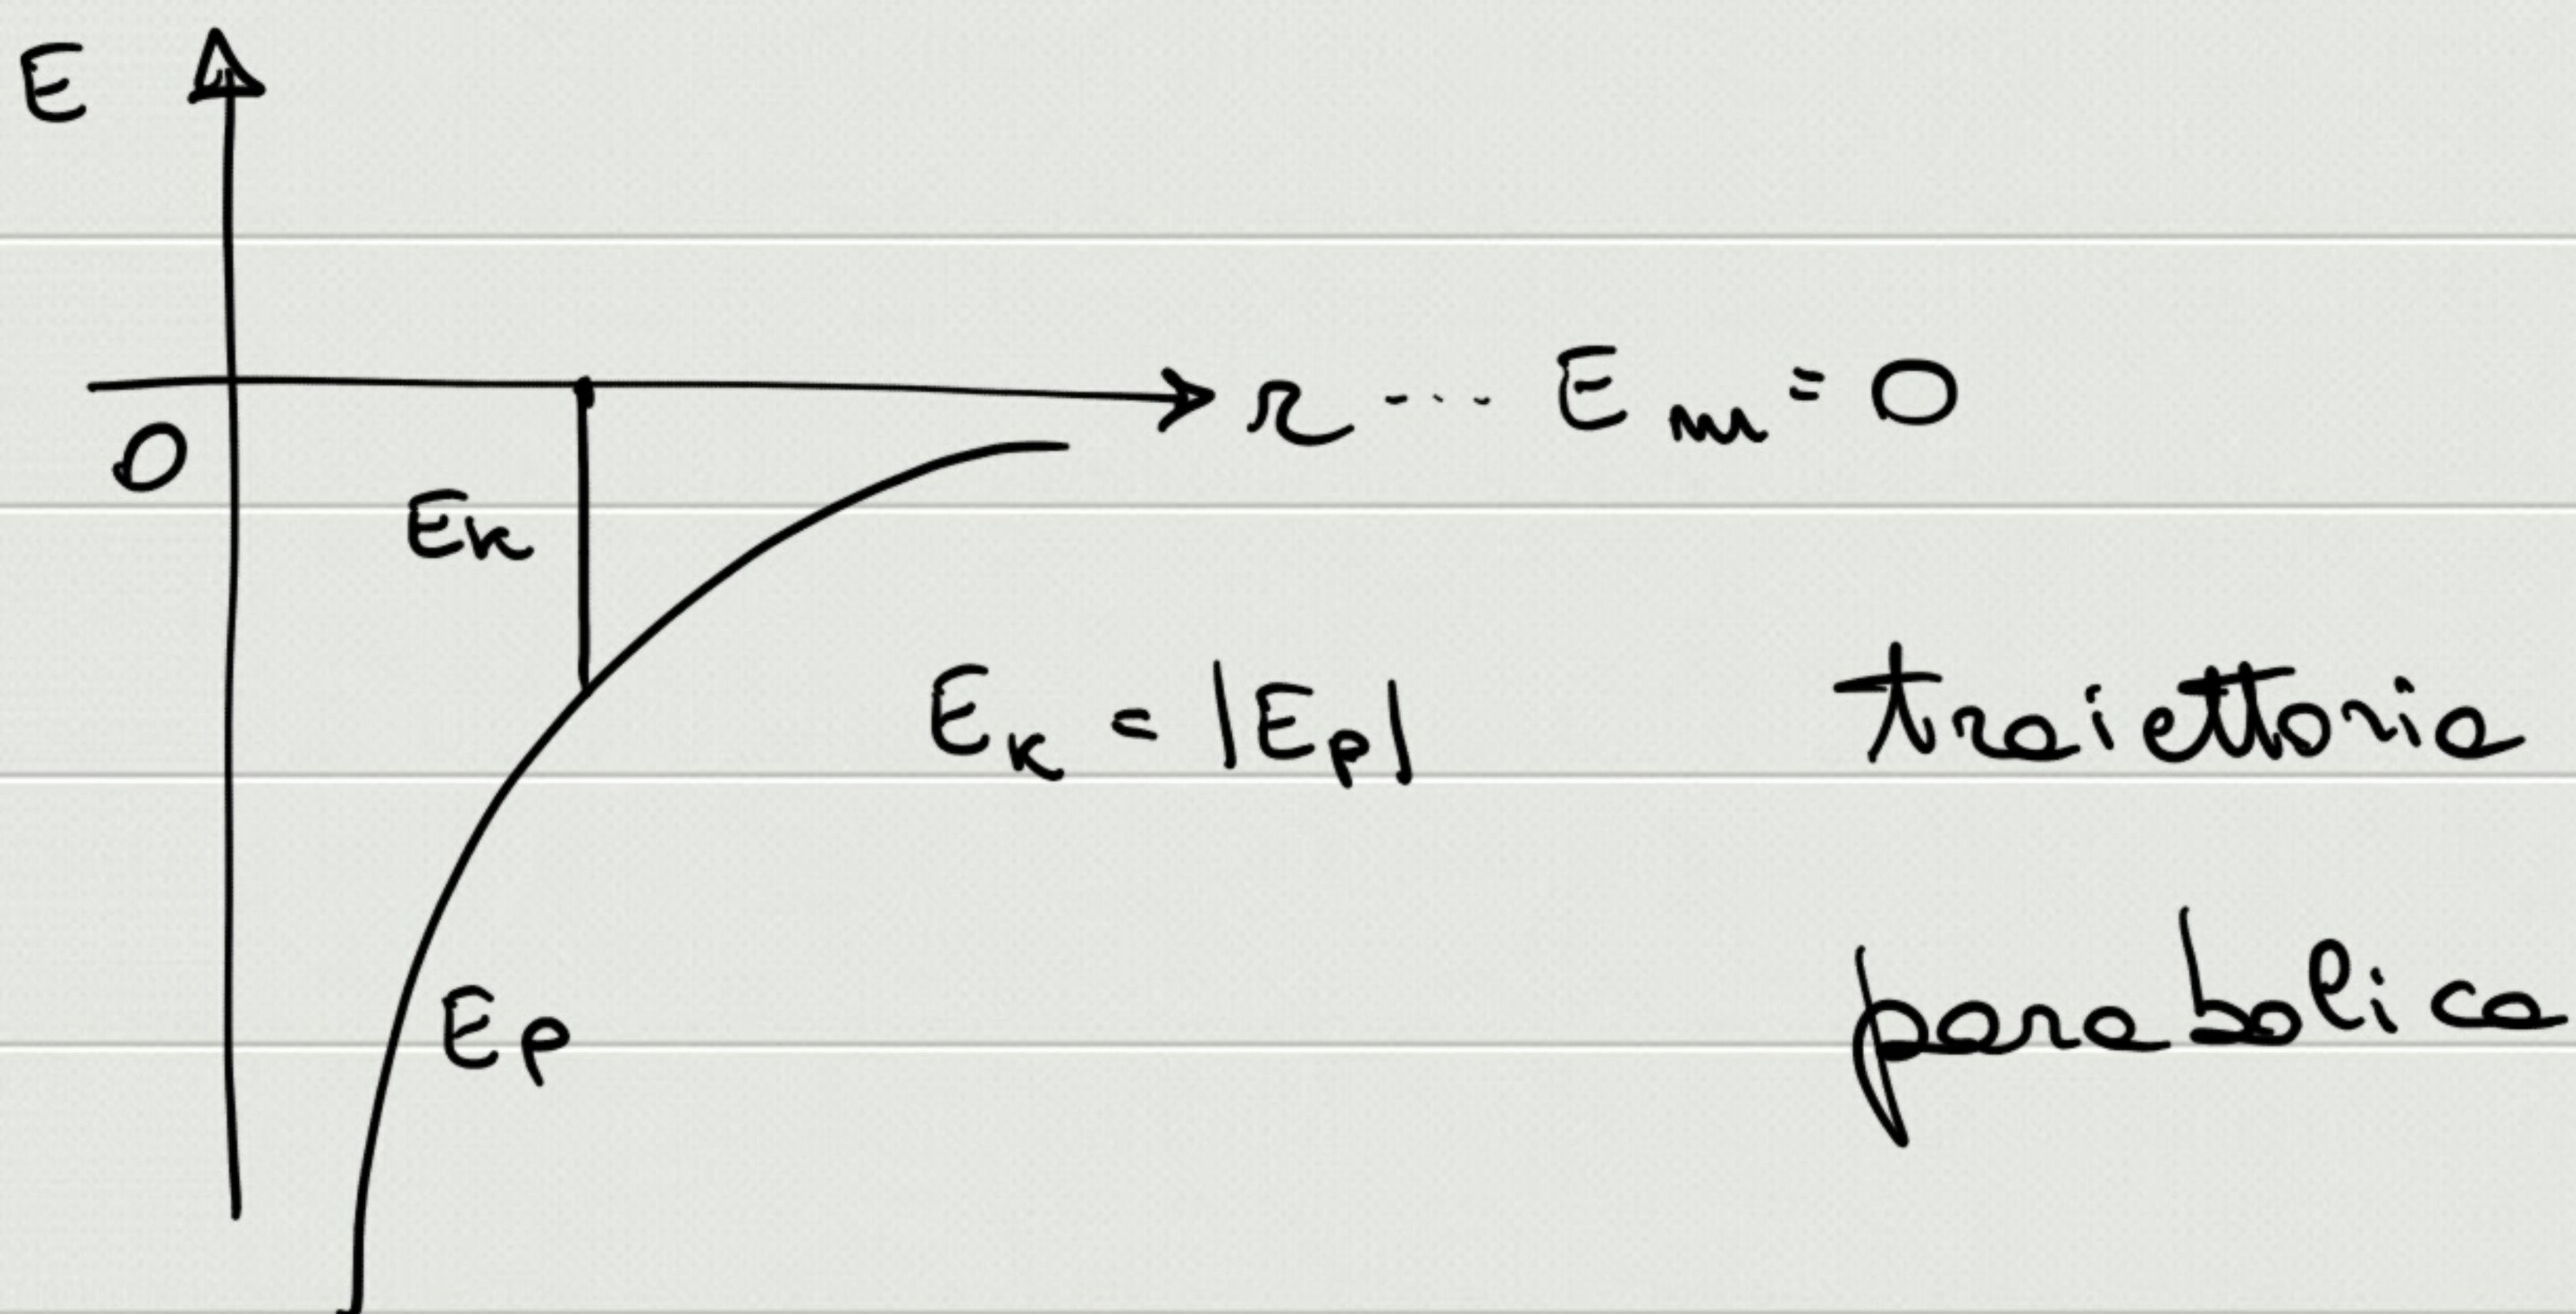 E
r --- Em = 0
0
Ek
Ek = |Ep|
traiettoria
parabolica
Ep